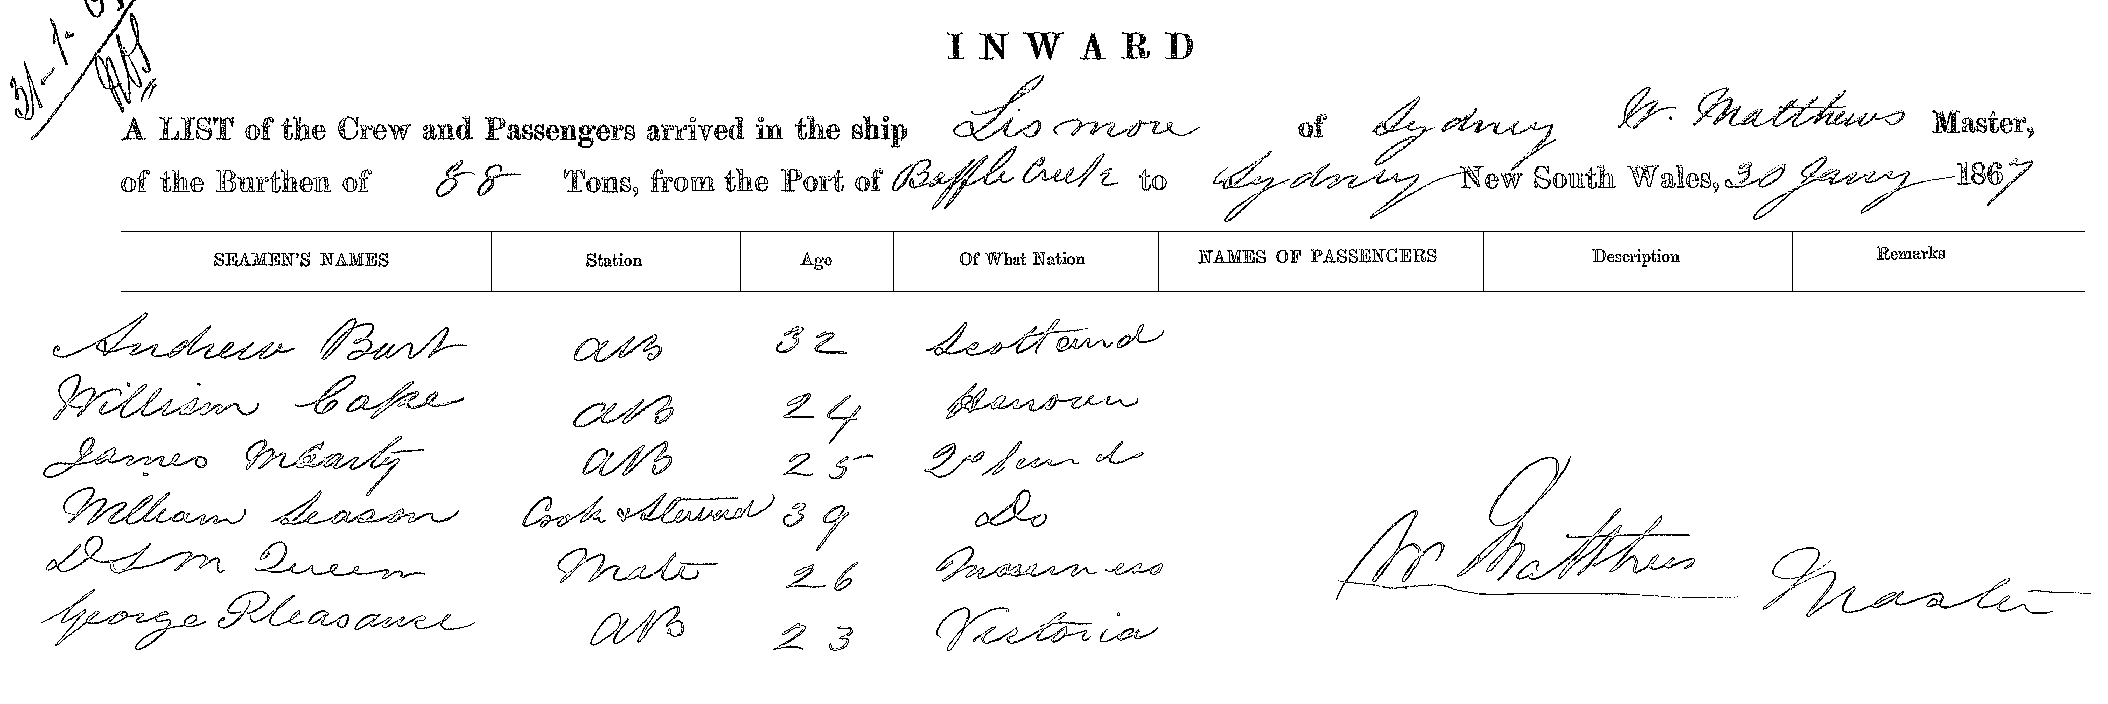 31-1-
INWARD
A LIST of the Crew and Passengers arrived in the ship Lismore of Sydney W. Matthews Master,
of the Burthen of 88 Tons, from the Port of Baffle Creek to Sydney New South Wales, 30 Jany 1867
SEAMEN'S NAMES Station Age Of What Nation NAMES OF PASSENGERS Description Remarks
Andrew Burt AB 32 Scotland
William Cape AB 24 Hanover
James McCarty AB 25
William Season Cook & Steward 39 Do
D S M Queen Mate 26
George Pleasance AB 23 Victoria
W Matthews Master